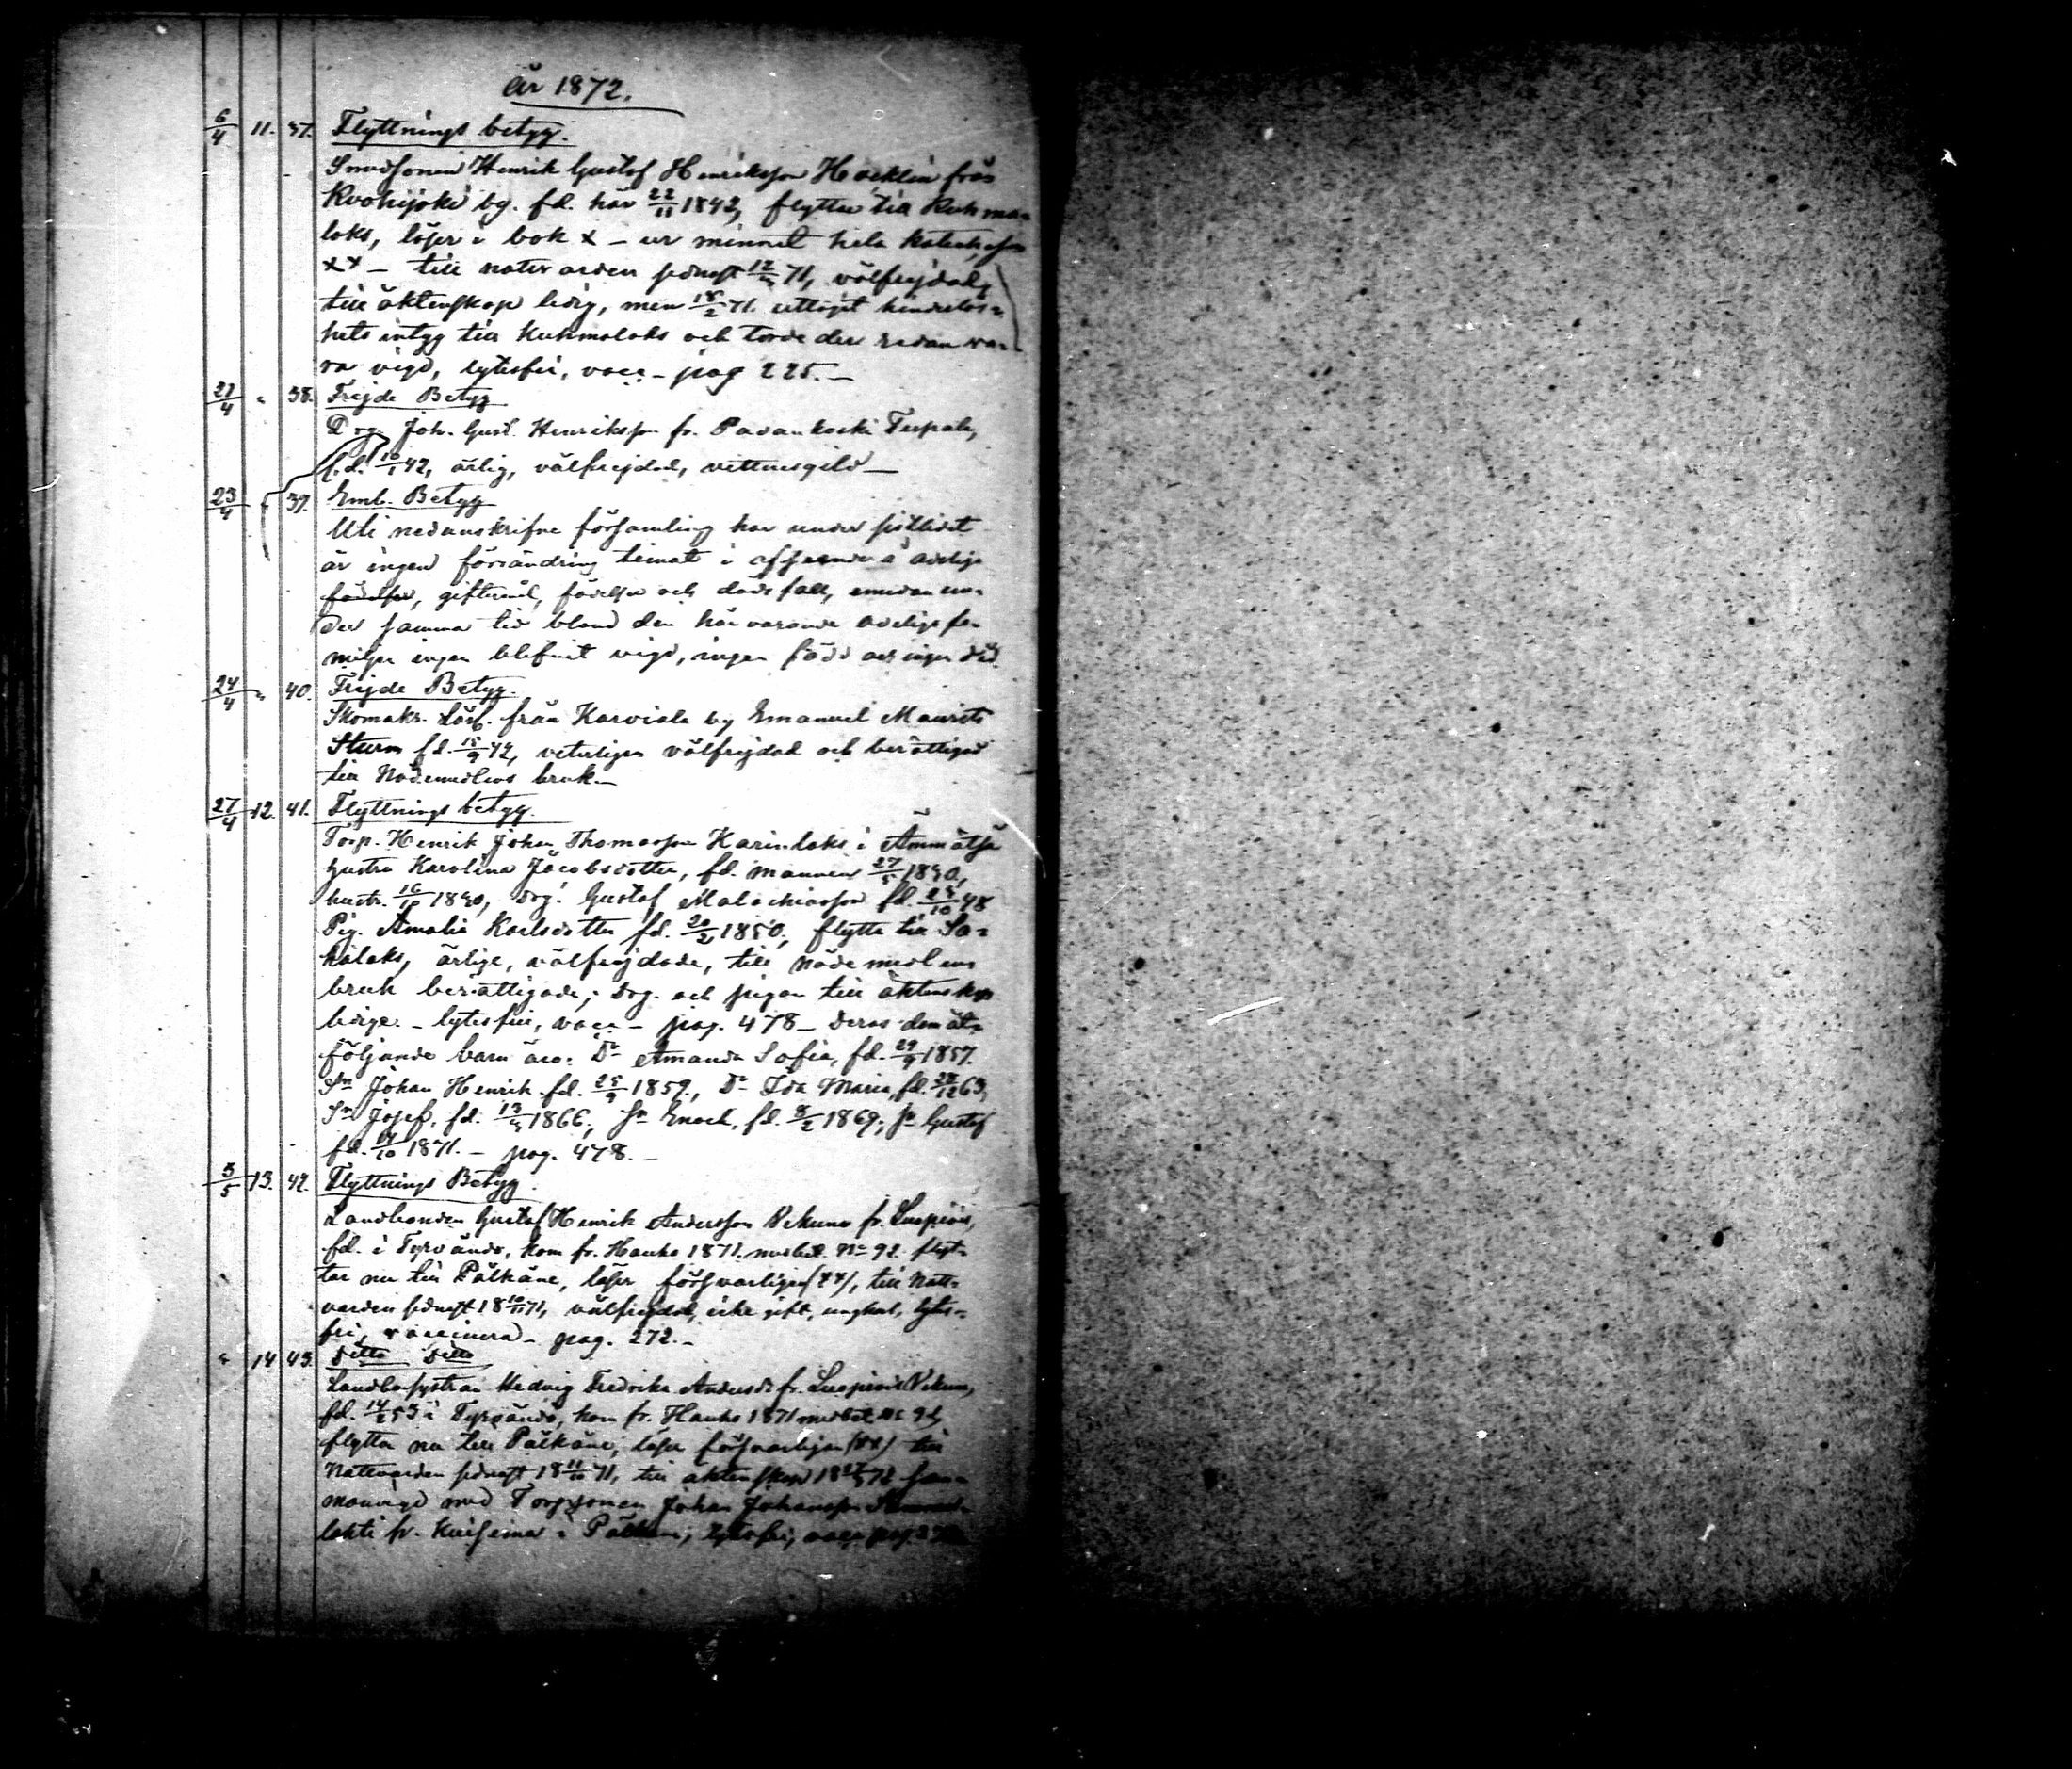 År 1872.
6/4 11. 37. Flyttnings betyg.
Smedsonen Henrik Gustof Henriksson Hæcklin från
Kvohijoki by. fd. här 22/11 1842, flyttar till Kuhma=
loks, läser i bok x – ur minnet hela katechesen
xx – till nattvarden sednast 12/ 71, välfrejdad,
till äktenskap ledig, men 18/2 71. uttagit hinderlös=
hets intyg till Kuhmaloks och torde der redan va=
ra vigd, lytesfri, vacc – pag 225. –
22/4 " 38. Frejde Betyg
Drg. Joh. Gust. Henriksson fr. Pavankoski
f.d. 10/1 42, ärlig, välfrejdad, vittnesgild –
23/4 " 39. Emb. Betyg
Uti nedanskrifne församling har under sistlidet
år ingen förändring timat i afseende å adelige
födelser, giftermål, födelse och dödsfall, emedan un=
der samma tid bland den härvarande adelige fa=
miljer ingen blefvit vigd, ingen född och ingen död
24/4 " 40. Frejde Betyg.
Skomakr. Lärl. från Karviala by Emanuel Maurits
Sturm fd. 15/9 42, veterligen välfrejdad och berättigad
till Nådemedlens bruk. –
27/4 12. 41. Flyttnings betyg.
Torp. Henrik Johan Thomasson Karinlaks i Ämmätsä
hustru Karolina Jacobsdotter, fd. mannen 27/5 1830,
hustr. 16/10 1830, drg. Gustaf Malachiasson fd. 25/10 48
Pig. Amalia Karlsdotter fd. 20/2 1850, flytta till Sa=
halaks, ärlige, välfrejdade, till nåde medlens
bruk berättigade; drg. och pigan till äktenskap
ledige. – lytesfrie, vacc – pag. 478 – Deras dem åt=
följande barn äro: Dr Amanda Sofia, fd. 29/9 1857.
Sn Johan Henrik fd. 25/9 1859., Dr Ida Maria, fd. 28/12 63,
Sn Josef, fd. 1866; Sn Enoch, fd. 8/2 1869; Sn Gustaf
fd. 14/10 1871. – pag. 478. –
3/5 13. 42. Flyttnings Betyg.
Landbonden Gustaf Henrik Andersson Vekuna fr. Luopiois,
fd. i Tyrvändö, kom fr. Hauho 1871. med bet. No 92. flyt=
tar nu till Pälkäne, läser försvarligen (xx), till Natt=
varden sednast 18 71, välfrejdad, icke gift, ungkarl, lytes=
fri, vaccinerad – pag. 272. –
" 14 43. Ditto Ditto
Landbosystran Hedvig Fredrika Andersdr fr. Luopiois Vekuna,
fd. 14/2 53 i Tyrvändö, kom fr. Hauho 1871 med bet. No 91,
flytta nu till Pälkäne, läser försvarligen (xx) till
Nattvarden sednast 18 71, till äktenskap 18 72 sam=
manvigd med Torpsonen Johan Johansson
lakti fr. i Pälkäne, lytesfri, vacc. pag. 27